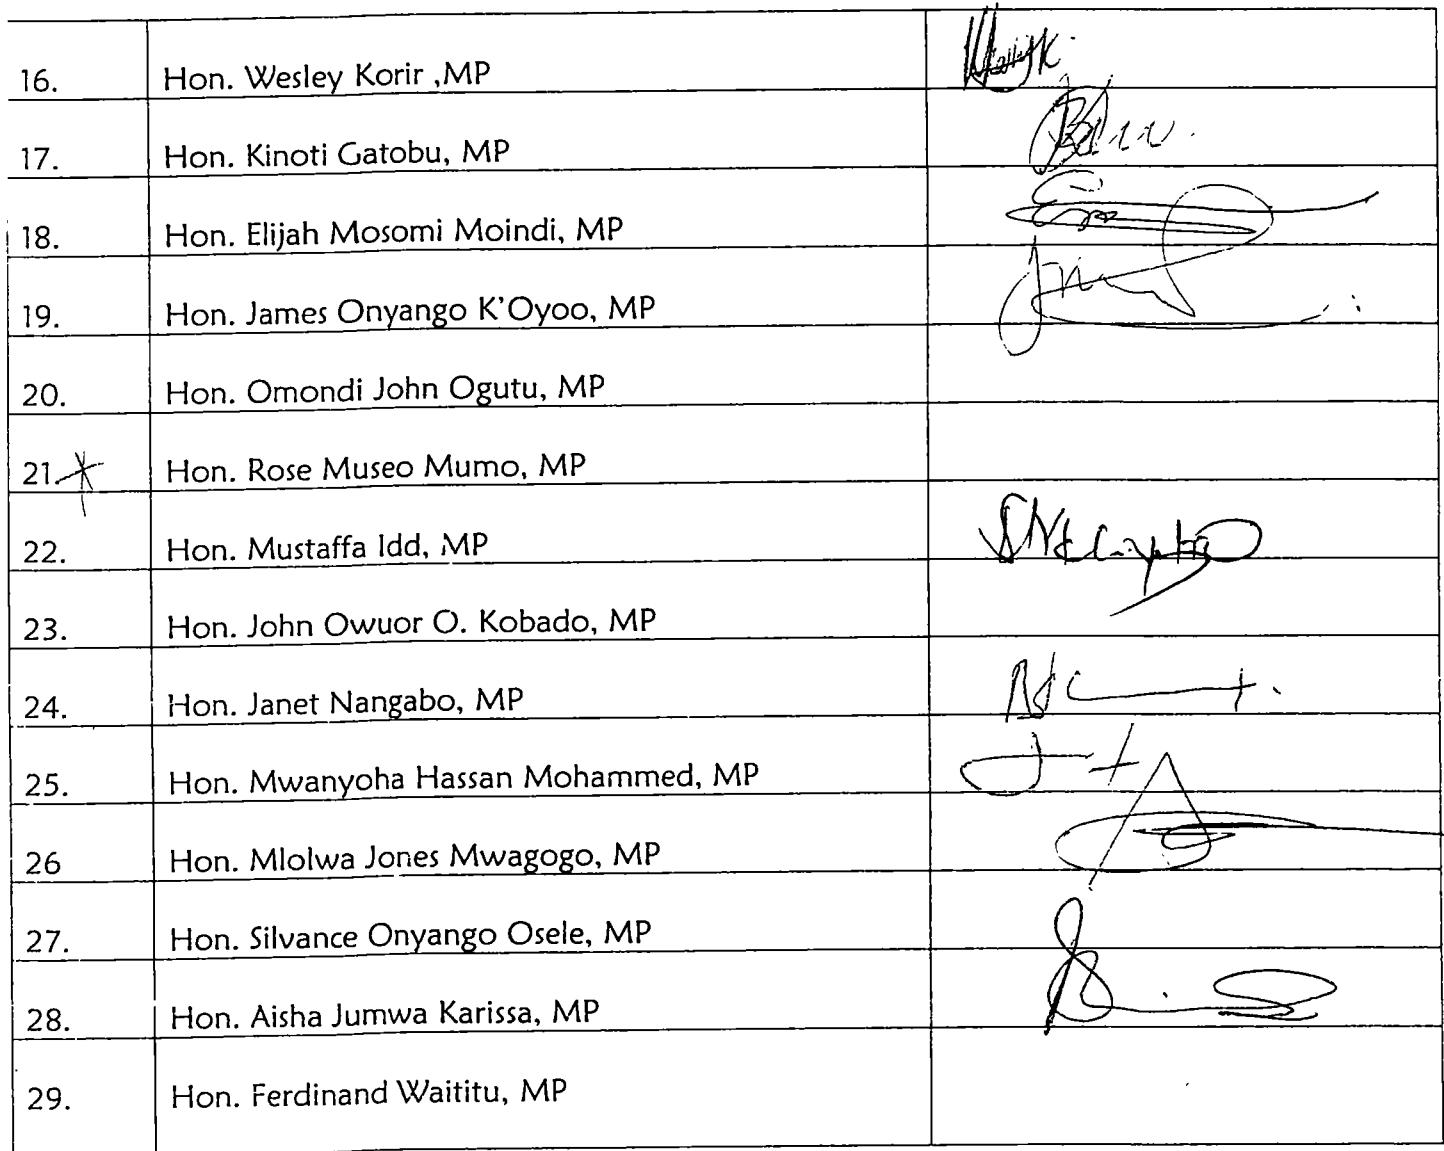 16. Hon. Wesley Korir ,MP
17. Hon. Kinoti Gatobu, MP
18. Hon. Elijah Mosomi Moindi, MP
19. Hon. James Onyango K'Oyoo, MP
20. Hon. Omondi John Ogutu, MP
21. Hon. Rose Museo Mumo, MP
22. Hon. Mustaffa Idd, MP
23. Hon. John Owuor O. Kobado, MP
24. Hon. Janet Nangabo, MP
25. Hon. Mwanyoha Hassan Mohammed, MP
26 Hon. Mlolwa Jones Mwagogo, MP
27. Hon. Silvance Onyango Osele, MP
28. Hon. Aisha Jumwa Karissa, MP
29. Hon. Ferdinand Waititu, MP